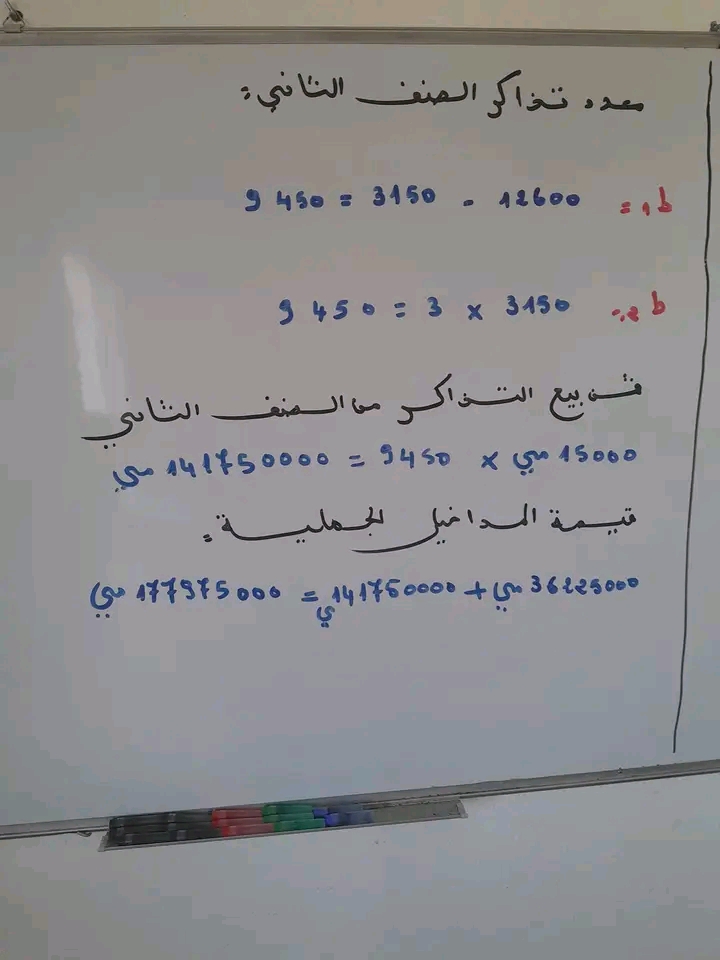 عدد تذاكر الصنف الثاني:
ط1: 12600 - 3150 = 9450
ط2: 3150 x 3 = 9450
ثمن بيع التذاكر من الصنف الثاني
15000 مي x 9450 = 141750000 مي
قيمة المداخيل الجملية:
36225000 مي + 141750000 مي = 177975000 مي